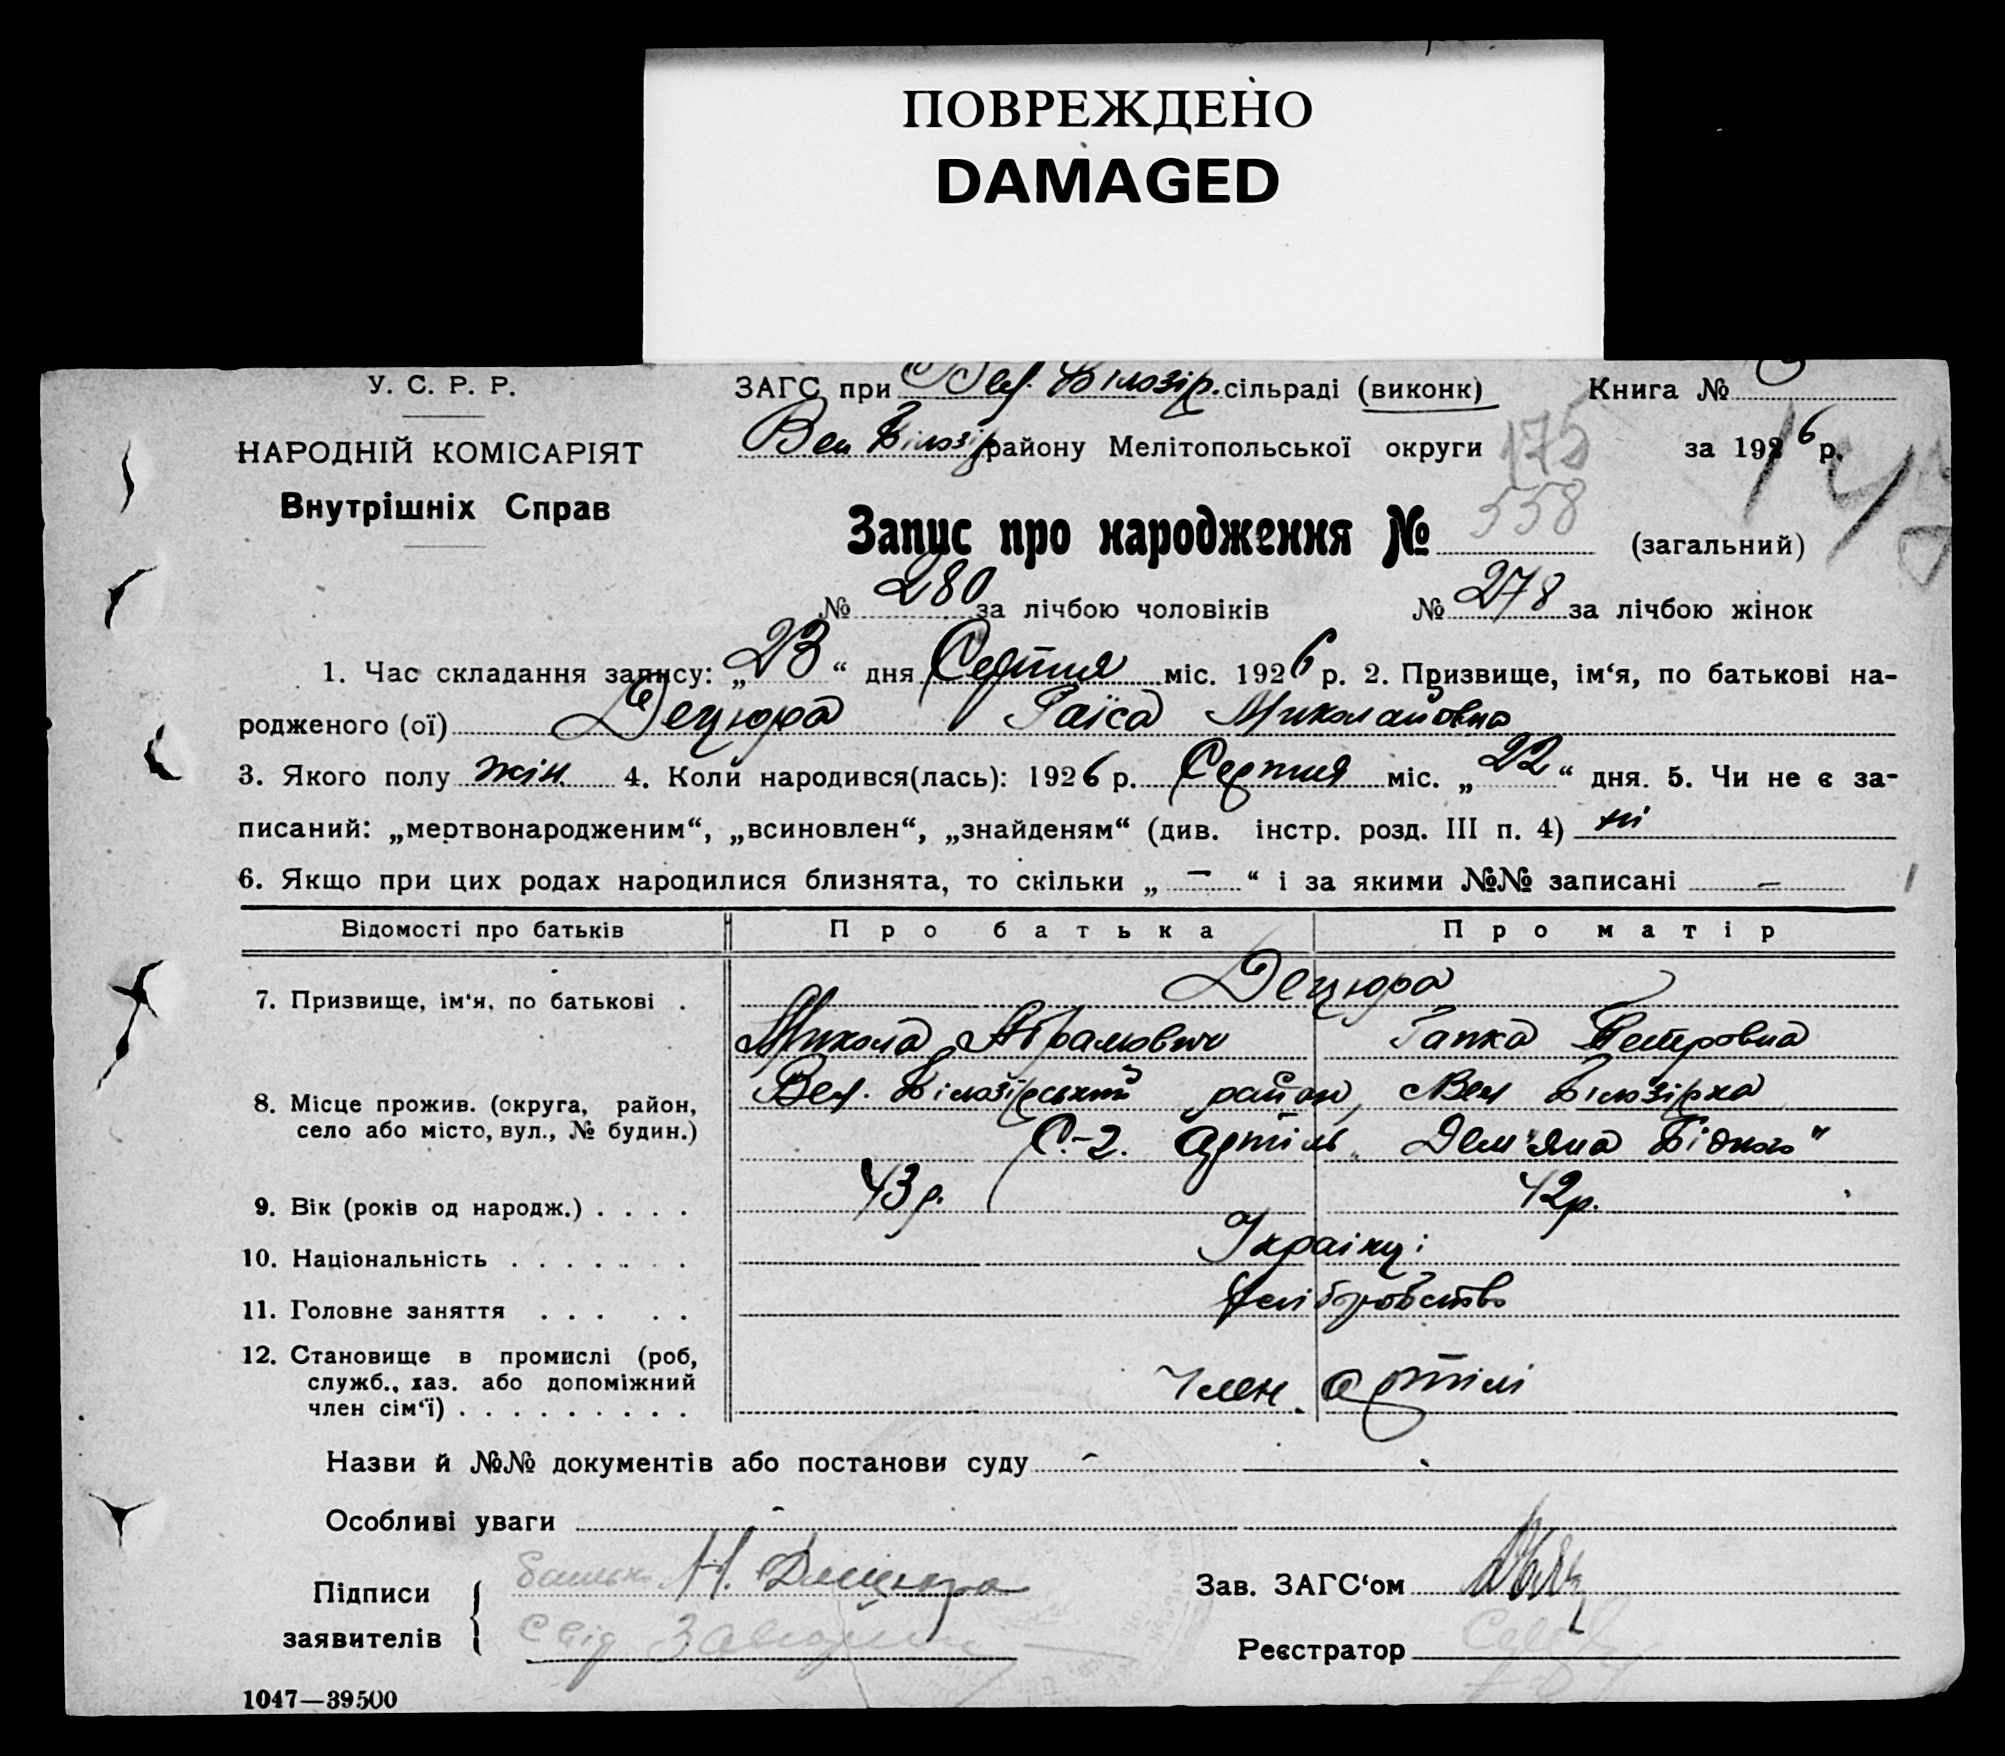 ПОВРЕЖДЕНО
DAMAGED
У. С. Р. Р.
НАРОДНІЙ КОМІСАРІЯТ
Внутрішніх Справ
ЗАГС при Вел. Білозір. сільраді (виконк)
Вел Білозір району Мелітопольської округи
Книга №
за 1926 р.
175
Запис про народження № 558 (загальний)
№ 280 за лічбою чоловіків № 278 за лічбою жінок
1. Час складання запису: „23“ дня Серпня міс. 1926 р. 2. Призвище, ім‘я, по батькові на-
родженого (ої) Децюра Раїса Миколаївна
3. Якого полу жін. 4. Коли народився(лась): 1926 р. Серпня міс. „22“ дня. 5. Чи не є за-
писаний: „мертвонародженим“, „всиновлен“, „знайденям“ (див. інстр. розд. III п. 4) ні
6. Якщо при цих родах народилися близнята, то скільки „ – “ і за якими №№ записані –
Відомості про батьків Про батька Про матір
7. Призвище, ім‘я, по батькові . Децюра
Микола Абрамович Гапка Петровна
8. Місце прожив. (округа, район, Вел. Білозірський район, Вел Білозірка
село або місто, вул., № будин.) С.-2. Артіль „Дем'яна Бідного"
9. Вік (років од народж.) . . . . 43 р. 42 р.
10. Національність . . . . . . . Українці
11. Головне заняття . . . . . Хліборобство
12. Становище в промислі (роб,
служб., хаз. або допоміжний
член сім‘ї) . . . . . . . . . Член. артілі
Назви й №№ документів або постанови суду -
Особливі уваги -
Підписи
заявителів
батько Н. Децюра
Свід
Зав. ЗАГС‘ом
Реєстратор
1047—39500